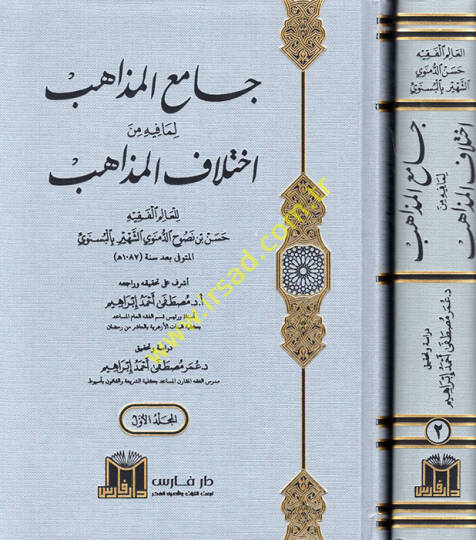 جامع المذاهب
لما فيه من
اختلاف المذاهب
للعالم الفقيه
حسن بن نصوح الدموي الشهير بالبسنوي
المتوفى بعد سنة (١٠٨٧هـ)
أشرف على تحقيقه وراجعه
أ.د. مصطفى أحمد إبراهيم
أستاذ ورئيس قسم الفقه العام المساعد
بكلية البنات الأزهرية بالعاشر من رمضان
دراسة وتحقيق
د. عمر مصطفى أحمد إبراهيم
مدرس الفقه المقارن المساعد بكلية الشريعة والقانون بأسيوط
المجلد الأول
دار فارس
دار فارس
www.irsad.com.tr
العالم الفقيه
حسن الدموي
الشهير بالبسنوي
جامع المذاهب
لما فيه من
اختلاف المذاهب
دراسة وتحقيق
د. عمر مصطفى أحمد إبراهيم
٢
دار فارس